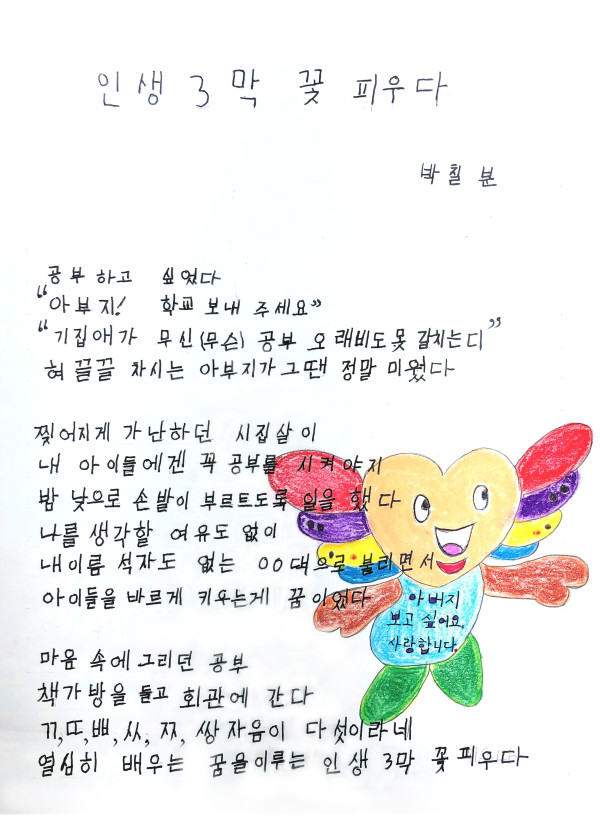 인생 3막 꽃 피우다
박칠분
공부하고 싶었다
"아부지! 학교 보내 주세요"
"기집애가 무신(무슨) 공부 오래비도 못 갈치는디"
혀 끌끌 차시는 아부지가 그땐 정말 미웠다
찢어지게 가난하던 시집살이
내 아이들에겐 꼭 공부를 시켜야지
밤 낮으로 손발이 부르트도록 일을 했다
나를 생각할 여유도 없이
내이름 석자도 없는 00댁으로 불리면서
아이들을 바르게 키우는게 꿈이었다
아버지
보고 싶어요.
사랑합니다.
마음 속에 그리던 공부
책가방을 들고 회관에 간다
ㄲ,ㄸ,ㅃ,ㅆ,ㅉ, 쌍자음이 다섯이라네
열심히 배우는 꿈을이루는 인생 3막 꽃피우다